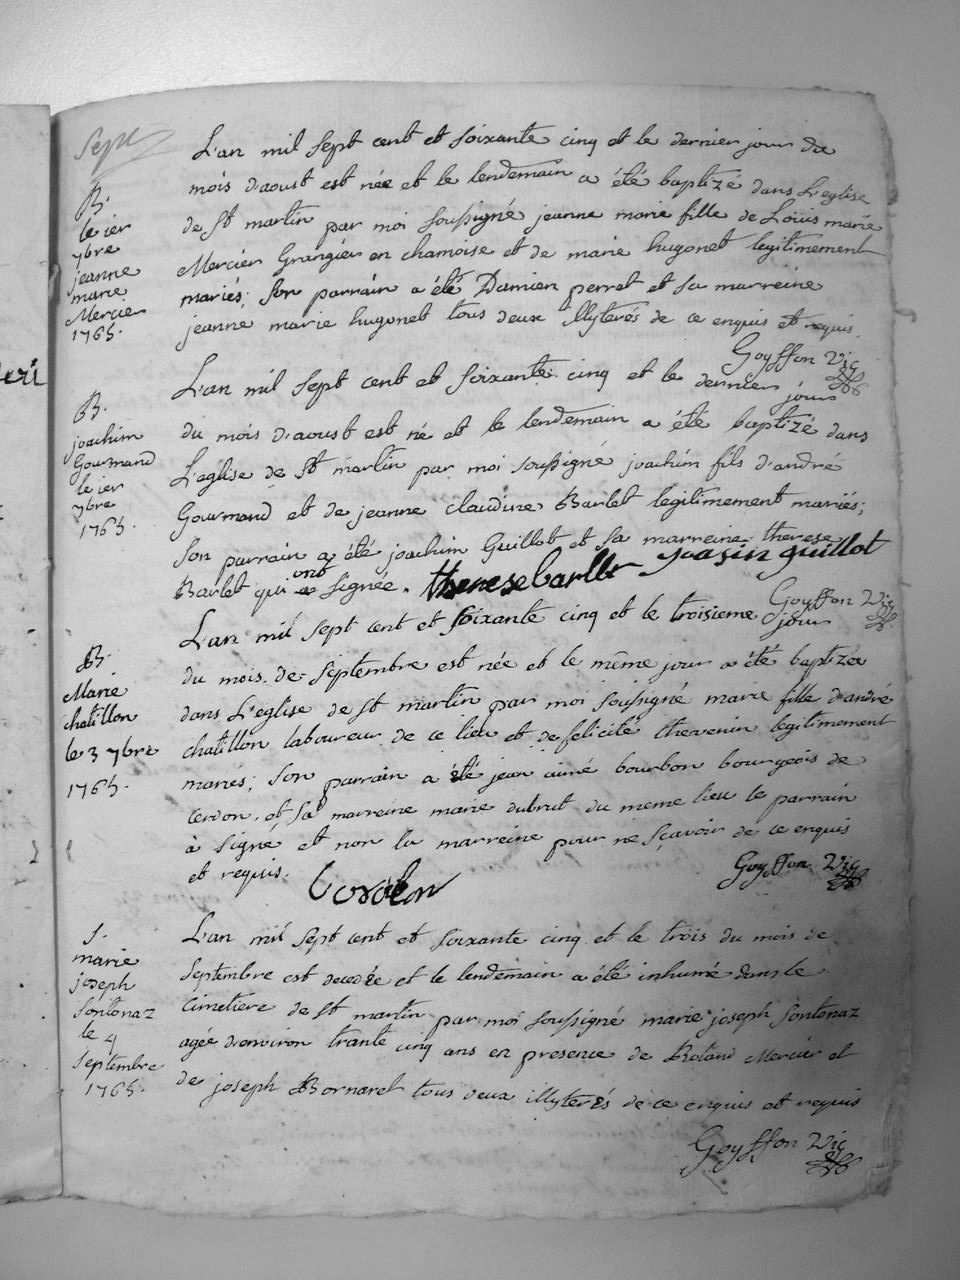 Sept
B.
le ier
7bre
jeanne
marie
Mercier
1765.
L'an mil sept cent et soixante cinq et le dernier jour du
mois d'aoust est née et le lendemain a été baptizé dans L'eglise
de St martin par moi soussigné jeanne marie fille de Loüis marie
Mercier Grangier en chamoise et de marie hugonet legitimement
mariés; son parrain a été Damien perret et sa marreine
jeanne marie hugonet tous deux illyterés de ce enquis et requis.
Goyffon Vic
B.
joachim
Gourmand
le ier
7bre
1765.
L'an mil sept cent et soixante cinq et le dernier jour
du mois d'aoust est né et le lendemain a été baptizé dans
L'eglise de St martin par moi soussigné joachim fils d'andré
Gourmand et de jeanne claudine Barlet legitimement mariés;
son parrain a été joachim Guillot et sa marreine therese
Barlet qui ont signée. therese barllet joasin guillot
Goyffon Vic
B.
Marie
chatillon
le 3 7bre
1765.
L'an mil sept cent et soixante cinq et le troisieme jour
du mois de septembre est née et le même jour a été baptizée
dans L'eglise de St martin par moi soussigné marie fille d'andré
chatillon laboureur de ce lieu et de felicité thevenin legitimement
mariés; son parrain a été jean aimé bourbon bourgeois de
cerdon, et sa marreine marie dubrut du meme lieu le parrain
à signé et non la marreine pour ne sçavoir de ce enquis
et requis.
Goyffon Vic
S.
marie
joseph
fontenaz
le 4
septembre
1765.
L'an mil sept cent et soixante cinq et le trois du mois de
septembre est decedée et le lendemain a été inhumé dans le
Cimetiere de St martin par moi soussigné marie joseph fontenaz
agée d'environ trante cinq ans en presence de Roland Mercier et
de joseph Bornaret tous deux illyterés de ce enquis et requis
Goyffon Vic